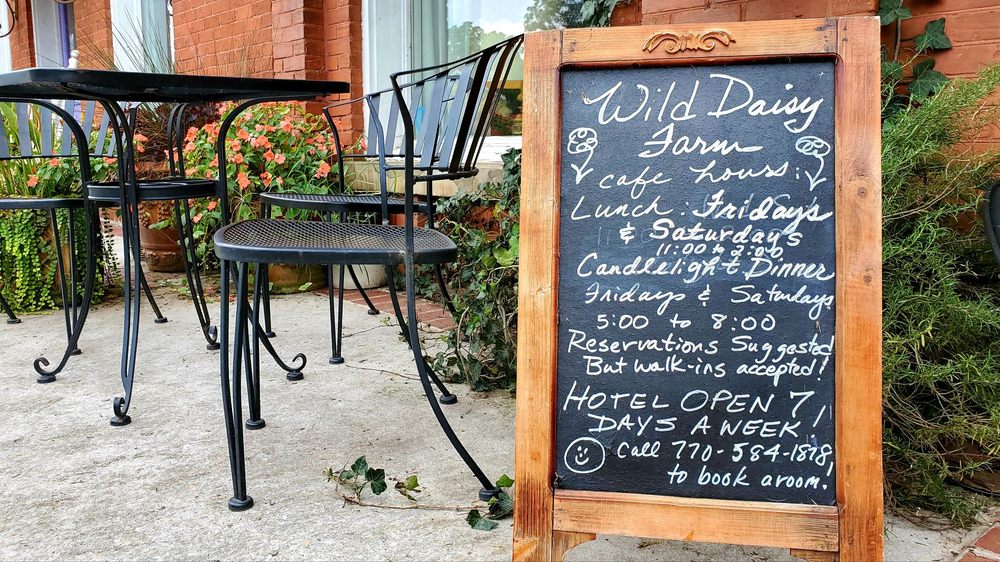 Wild Daisy
Farm
cafe hours:
Lunch: Fridays
& Saturdays
11:00 to 2:00
Candlelight Dinner
Fridays & Saturdays
5:00 to 8:00
Reservations Suggested
But walk-ins accepted!
HOTEL OPEN 7
DAYS A WEEK!
Call 770-584-1878
to book a room!